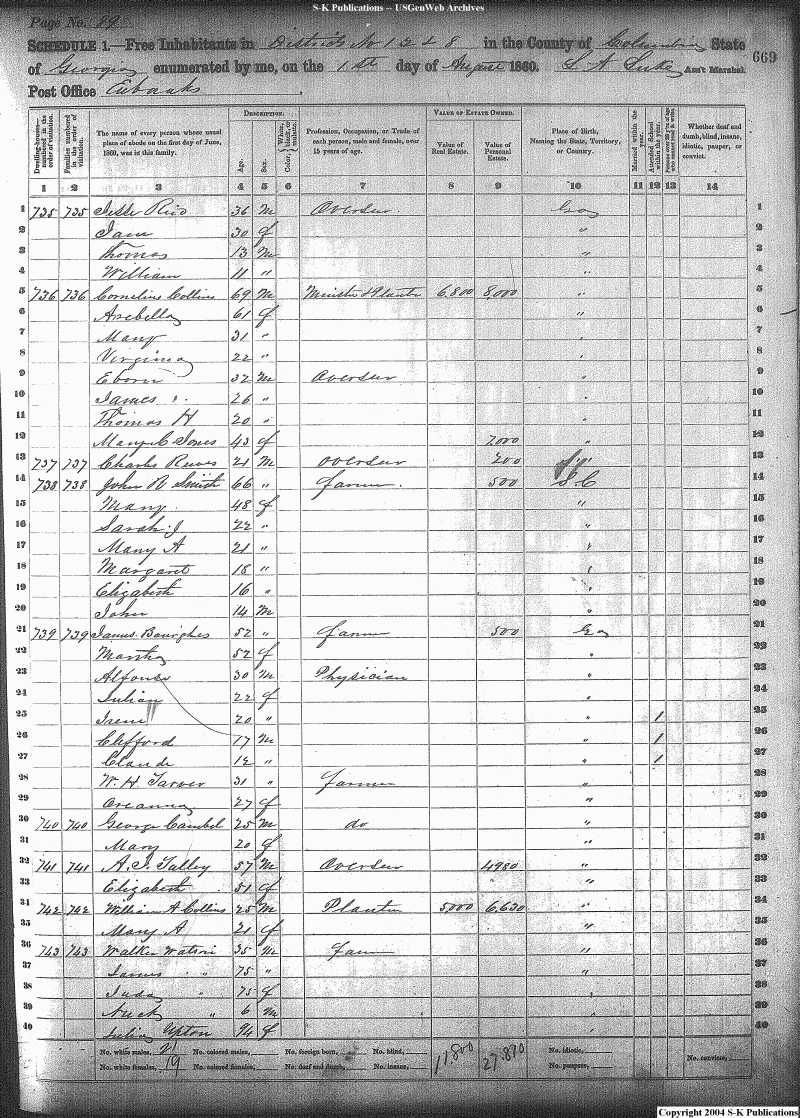 S-K Publications – USGenWeb Archives
Page No. 89
SCHEDULE 1.—Free Inhabitants in Districts No 1 2 & 8 in the County of Columbia State
of Georgia enumerated by me, on the 1st day of August 1860. Ass't Marshal. 669
Post Office Eubanks
Dwelling-houses—numbered in the order of visitation.
Families numbered in the order of visitation.
The name of every person whose usual place of abode on the first day of June, 1860, was in this family.
DESCRIPTION.
Age.
Sex.
Color, White, black, or mulatto.
Profession, Occupation, or Trade of each person, male and female, over 15 years of age.
VALUE OF ESTATE OWNED.
Value of Real Estate.
Value of Personal Estate.
Place of Birth, Naming the State, Territory, or Country.
Married within the year.
Attended School within the year.
Persons over 20 y'rs of age who cannot read & write.
Whether deaf and dumb, blind, insane, idiotic, pauper, or convict.
1 2 3 4 5 6 7 8 9 10 11 12 13 14
1 735 735 Jesse 36 M Overseer Ga 1
2 Jane 30 f " 2
3 Thomas 13 M " 3
4 William 11 " " 4
5 736 736 Cornelius Collins 69 M Minister & Planter 6,800 8,000 " 5
6 Arabella 61 f " 6
7 Mary 31 " " 7
8 Virginia 22 " " 8
9 Eborn 32 M Overseer " 9
10 James 26 " " 10
11 Thomas H 20 " " 11
12 Jones 43 f 7,000 " 12
13 737 737 Charles Reeves 21 M Overseer 200 13
14 738 738 John R Smith 66 " farmer 500 S.C 14
15 Mary 48 f " 15
16 Sarah J 22 " " 16
17 Mary A 21 " " 17
18 Margaret 18 " " 18
19 Elizabeth 16 " " 19
20 John 14 M " 20
21 739 739 James 52 " farmer 500 Ga 21
22 Martha 52 f " 22
23 Alfonso 30 M Physician " 23
24 Julian 22 f " 24
25 Irene 20 " " 1 25
26 Clifford 17 M " 1 26
27 Claude 12 " " 1 27
28 W. H. Tarver 31 " farmer " 28
29 Oreanna 27 f " 29
30 740 740 George Cambel 25 M do " 30
31 Mary 20 f " 31
32 741 741 Talley 57 M Overseer 4980 " 32
33 Elizabeth 51 f " 33
34 742 742 William A Collins 25 M Planter 5,000 6,630 " 34
35 Mary A 21 f " 35
36 743 743 Walker Watson 35 M farmer " 36
37 James " 75 " " 37
38 Juda " 75 f " 38
39 " 6 M " 39
40 Upton f " 40
No. white males, 21 No. colored males, No. foreign born, No. blind, 11,800 27,890 No. idiotic, No. convicts,
No. white females, 19 No. colored females, No. deaf and dumb, No. insane, No. paupers,
Copyright 2004 S-K Publications